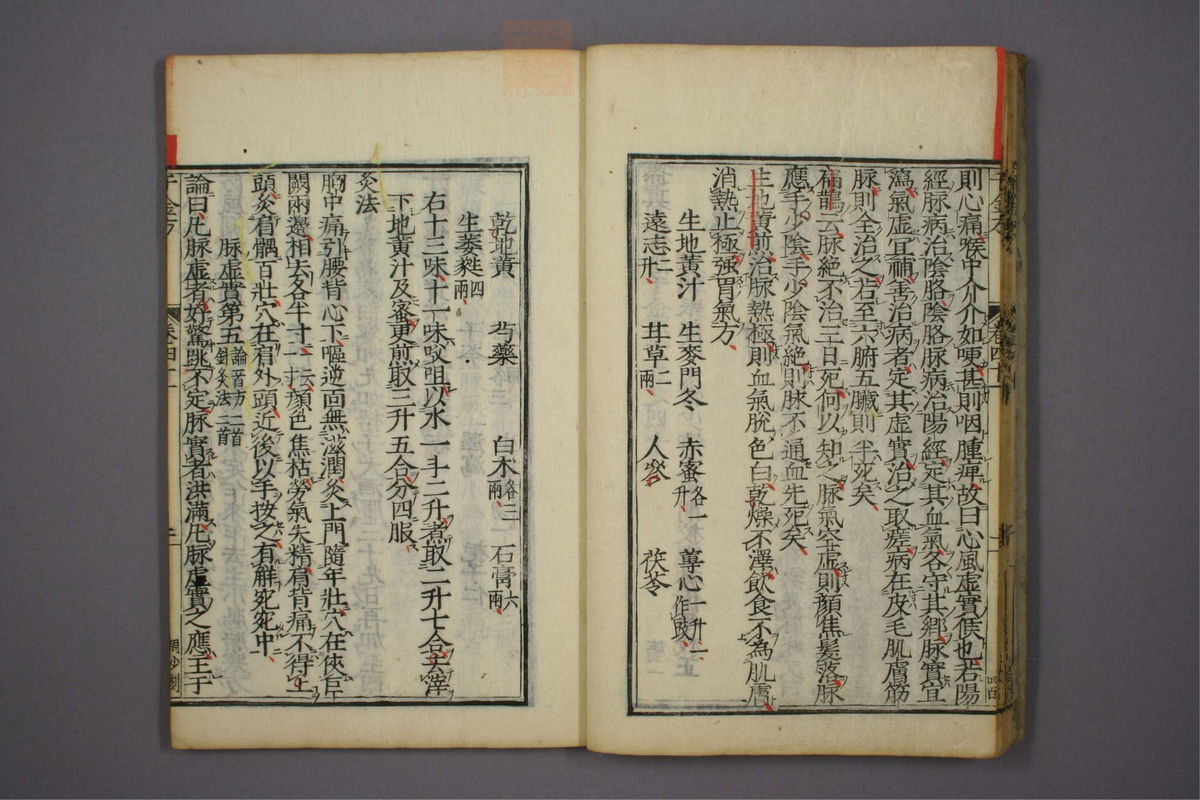 則心痛喉中介介如哽甚則咽腫痺故曰心風虛實候也若陽
經脉病治陰胳陰胳脉病治陽經定其血氣各守其鄉脉實宜
瀉氣虛宜補善治病者定其虛實治之取瘥病在皮毛肌膚筋
脉則全治之若至六腑五臟則半死矣
扁鵲云脉絕不治三日死何以知之脉氣空虛則顏焦髮落脉
應手少陰手少陰氣絕則脉不通血先死矣
生地黃煎治脉熱極則血氣脫色白乾燥不澤飲食不為肌膚
消熱止極强胃氣方
生地黃汁 生麥門冬 赤蜜各一升 蓴心一升一作豉
遠志二升 甘草二兩 人參 茯苓
乾地黃 芍藥 白朮各三兩 石膏六兩
生葳蕤四兩
右十三味十一味㕮咀以水一斗二升煮取二升七合去滓
下地黃汁及蜜更煎取三升五合分四服
灸法
胸中痛引腰背心下嘔逆面無滋潤灸上門隨年壯穴在俠巨
闕兩邊相去各半寸一云 顏色焦枯勞氣失精肩背痛不得上
頭灸肩髃百壯穴在肩外頭近後以手按之有解宛宛中
脉虛實第五論一首方二首針灸法二首
論曰凡脉虛者好驚跳不定脉實者洪滿凡脉虛實之應主于
千金方 卷四十一